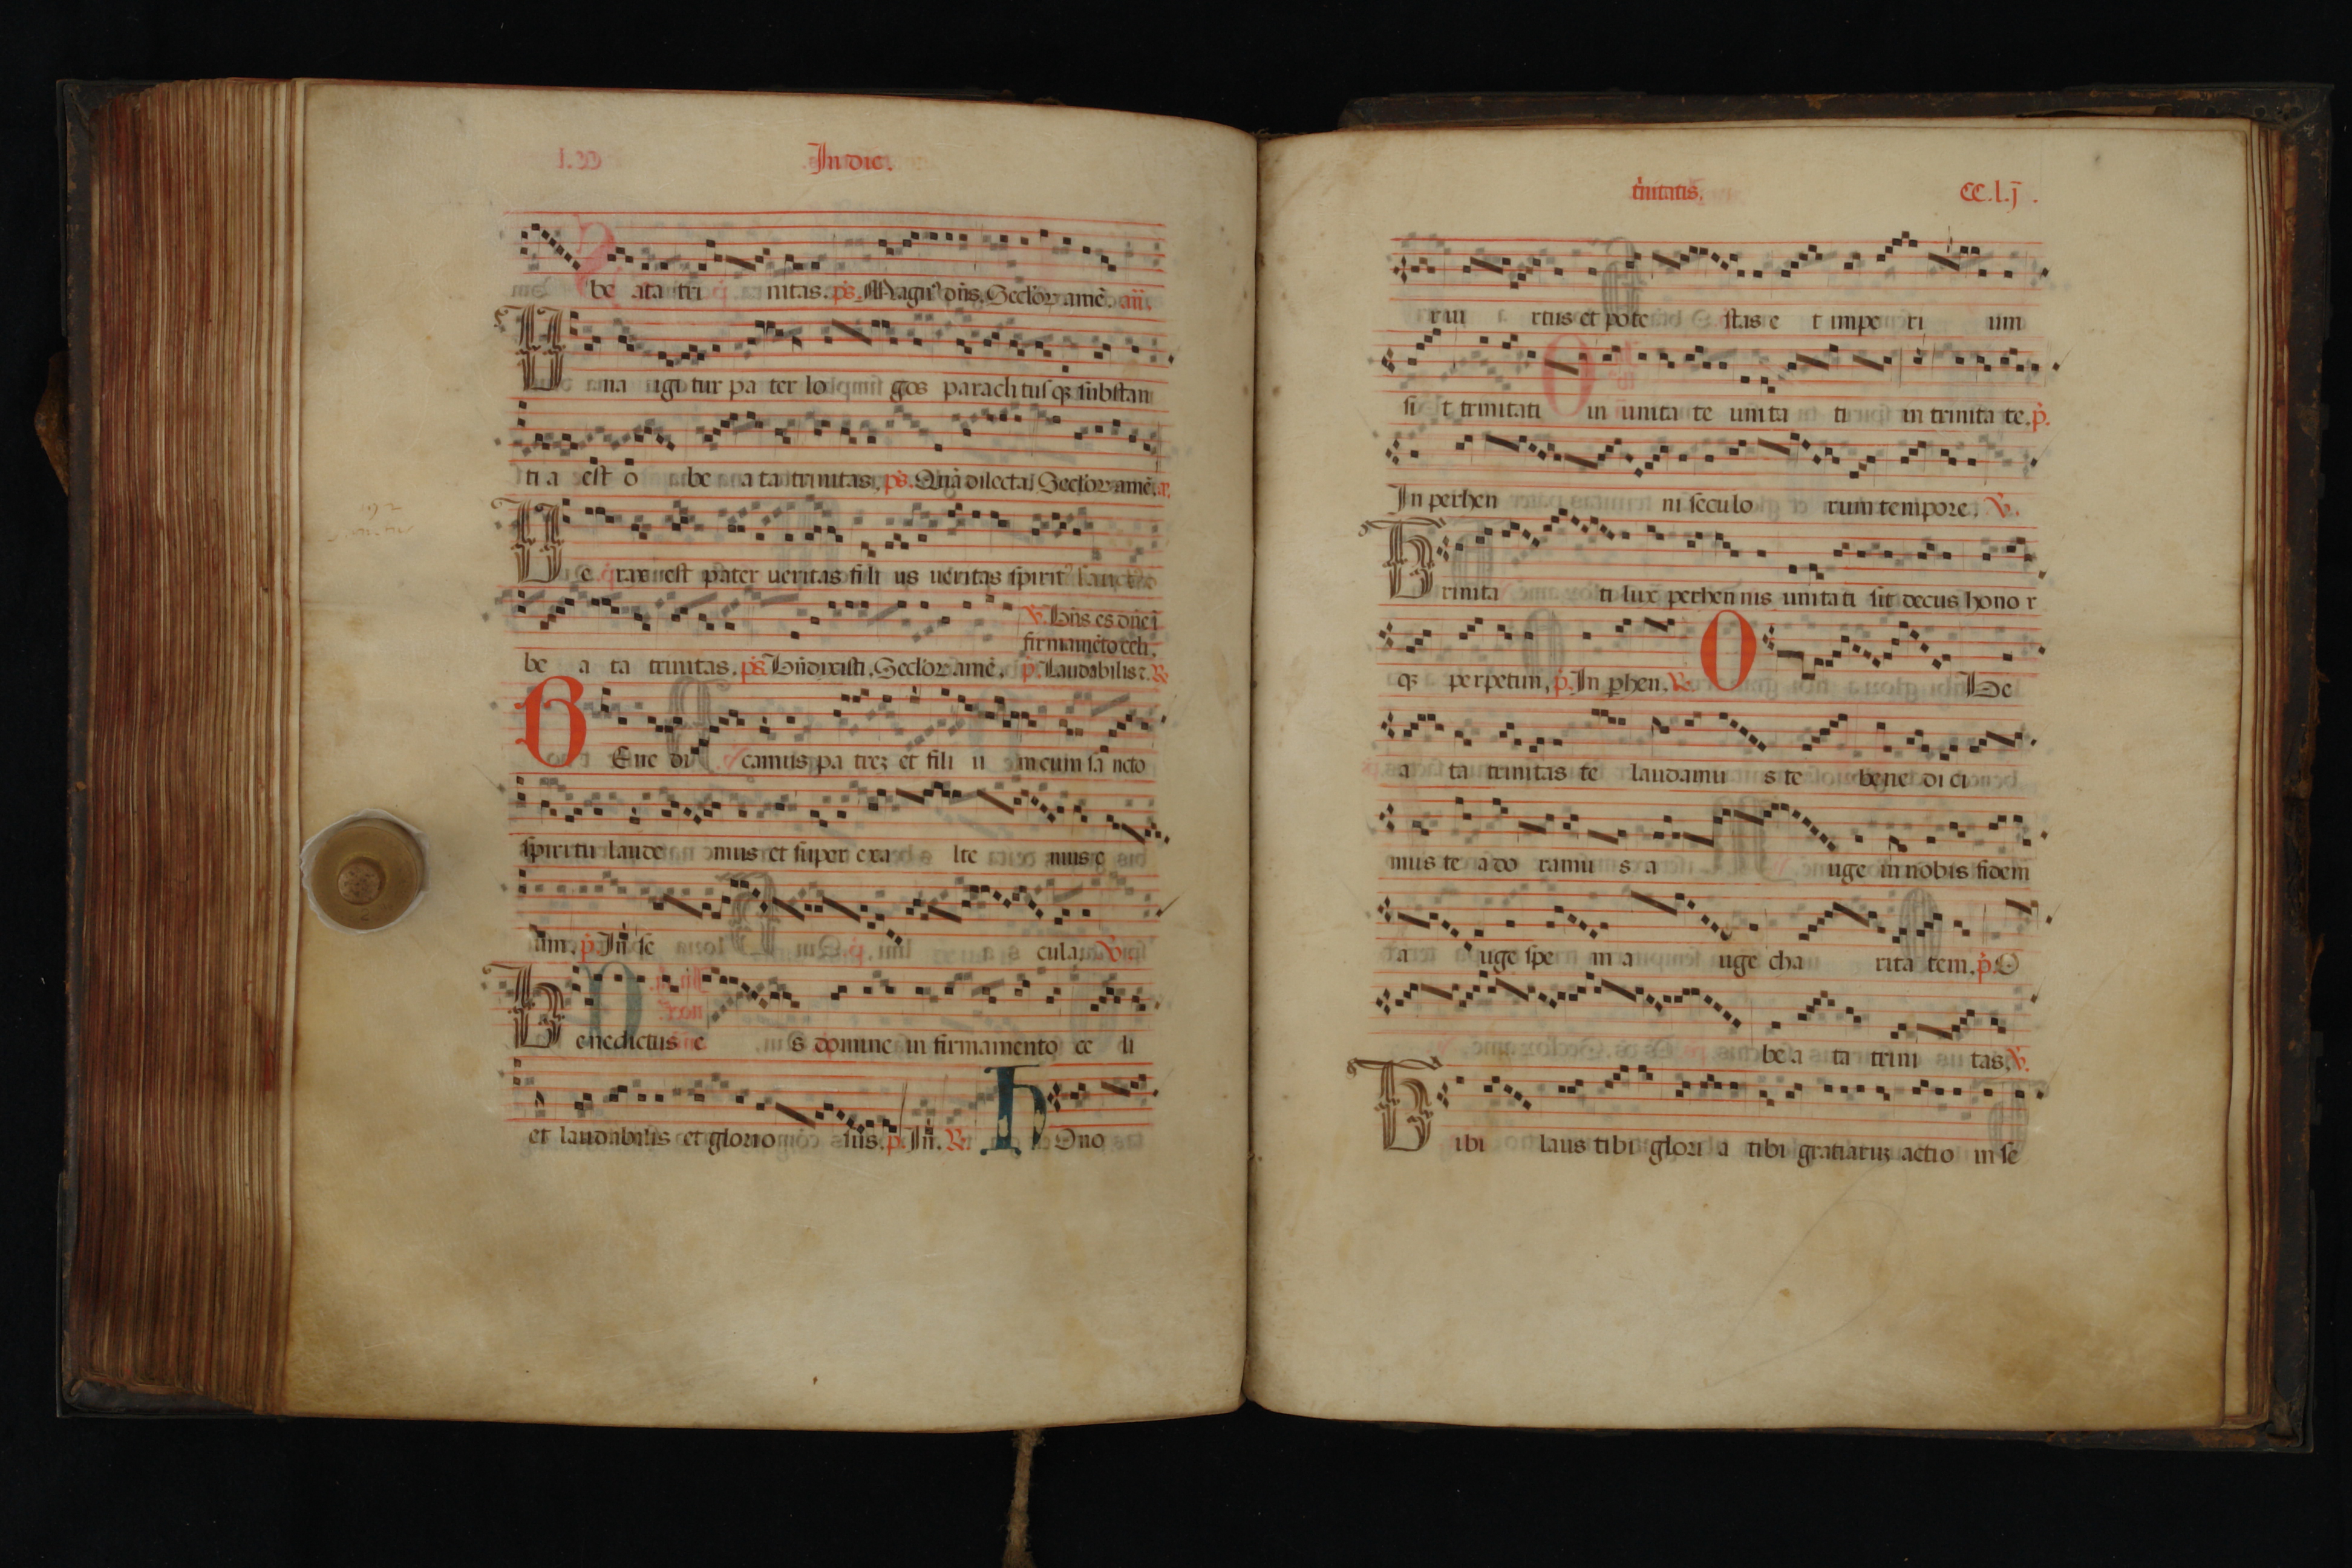 In die.
be ata tri nitas. ps. Magn⁹ dn̄s. Seclor amē. an̄.
Una igi tur pa ter lo gos paracli tus qꝫ substan
ti a est o be a ta trinitas. ps. Seclor amē.
Ue rax est pater ueritas fili us ueritas spirit⁹
be a ta trinitas. ps. Bn̄dixisti. Seclor amē.
℣. Bn̄s es dn̄e ī
firmamēto celi.
p̄. Laudabilis ⁊. ℟
BEne di camus pa treꝫ et fili u m cum sa ncto
spiritu laude mus et super exa lte mus e
um. p̄. In se cula. ℣.
Benedictus e s domine in firmamento ce li
et laudabilis et glorio sus. p̄. In. ℟. HOno
trinitatis. CC.l.j.
r uir a rtus et pote stas e t impe ri um
si t trinitati in unita te unita ti in trinita te. p̄.
In perhen ni seculo rum tempore. ℣.
Trinita ti lux perhen nis unitati sit decus hono r
qꝫ perpetim. p̄. In phen. ℟. O Be
a ta trinitas te laudamu s te bene di ci
mus te a do ramu s a uge in nobis fidem
a uge spe m a uge cha rita tem. p̄. O
be a ta trini tas. ℣.
Tibi laus tibi glori a tibi gratiaruꝫ actio in se